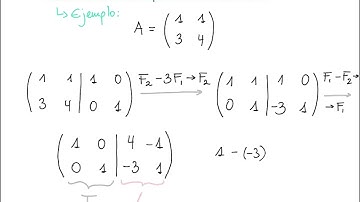 ↳ Ejemplo:
A = ( 1 1
3 4 )
( 1 1 | 1 0
3 4 | 0 1 ) F₂ - 3F₁ → F₂ ( 1 1 | 1 0
0 1 | -3 1 ) F₁ - F₂ →
→ F₁
( 1 0 | 4 -1
0 1 | -3 1 ) 1 - (-3)
I